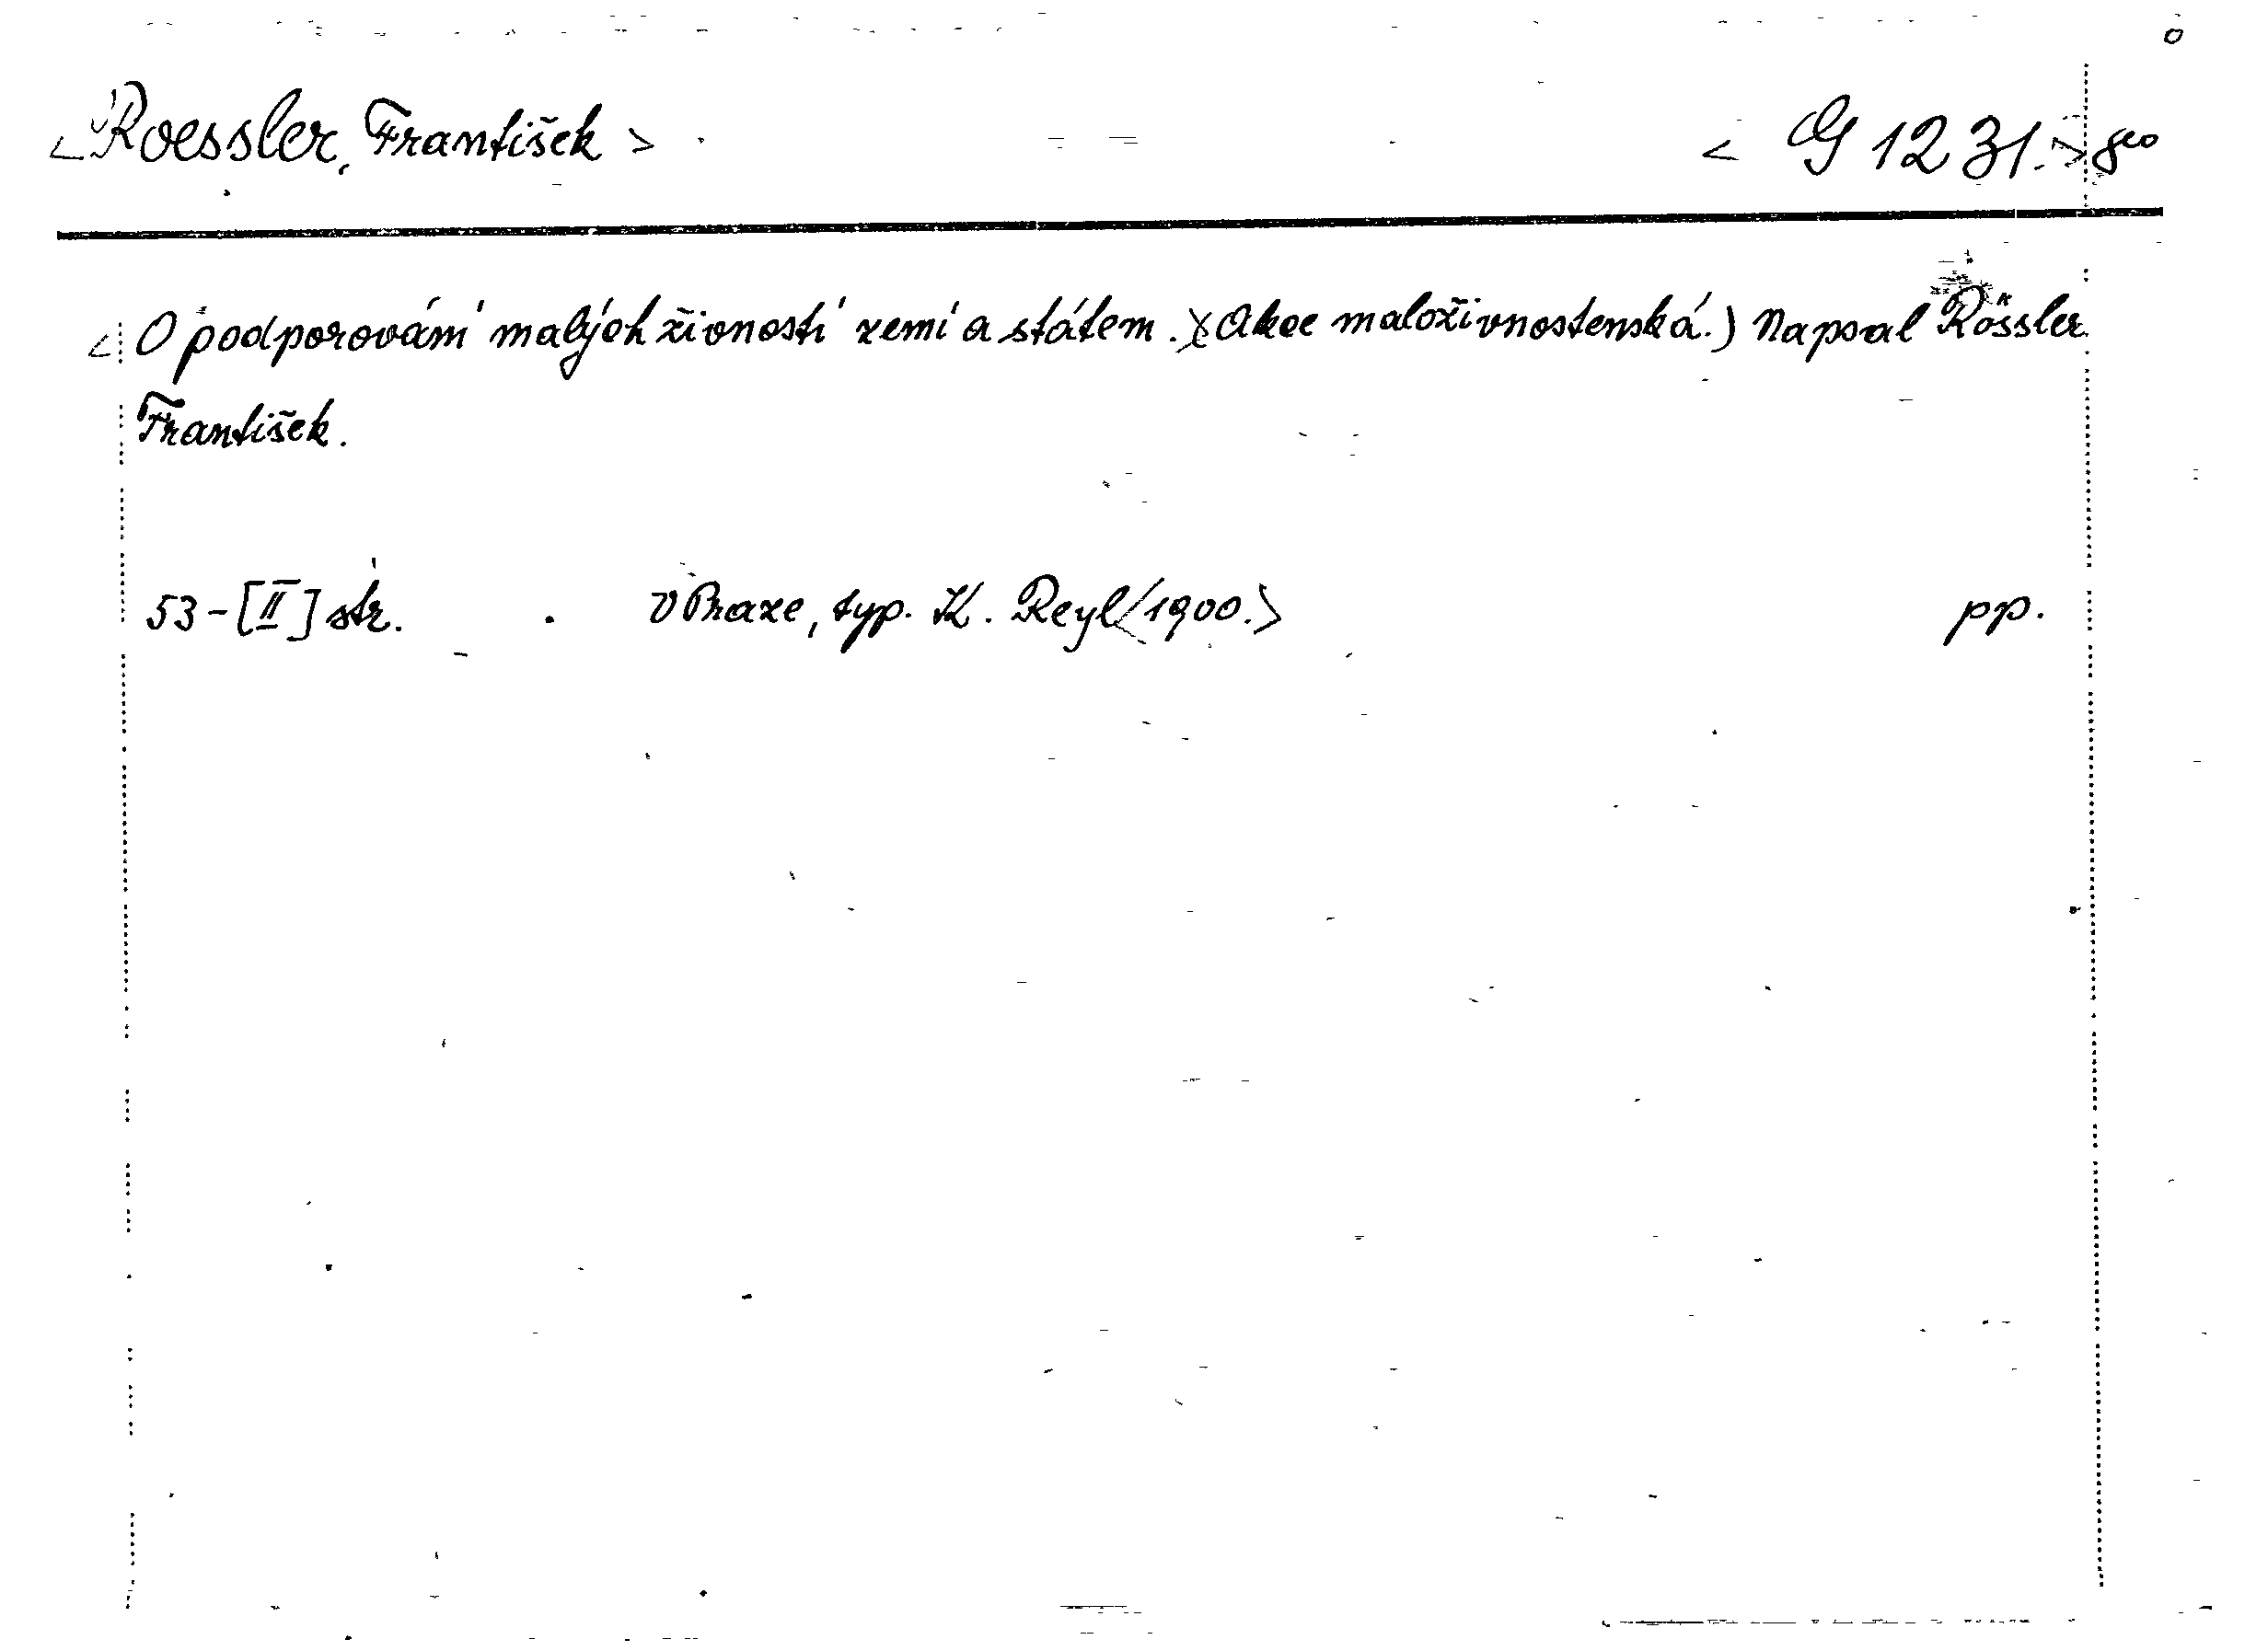 <Roessler, František> <G 1231.> geo
<O podporování malých živností zemí a státem. (Akce maloživnostenská.) Napsal Rössler
František.
53-[II] str. v Praze, typ. K. Reyl <1900.> pp.